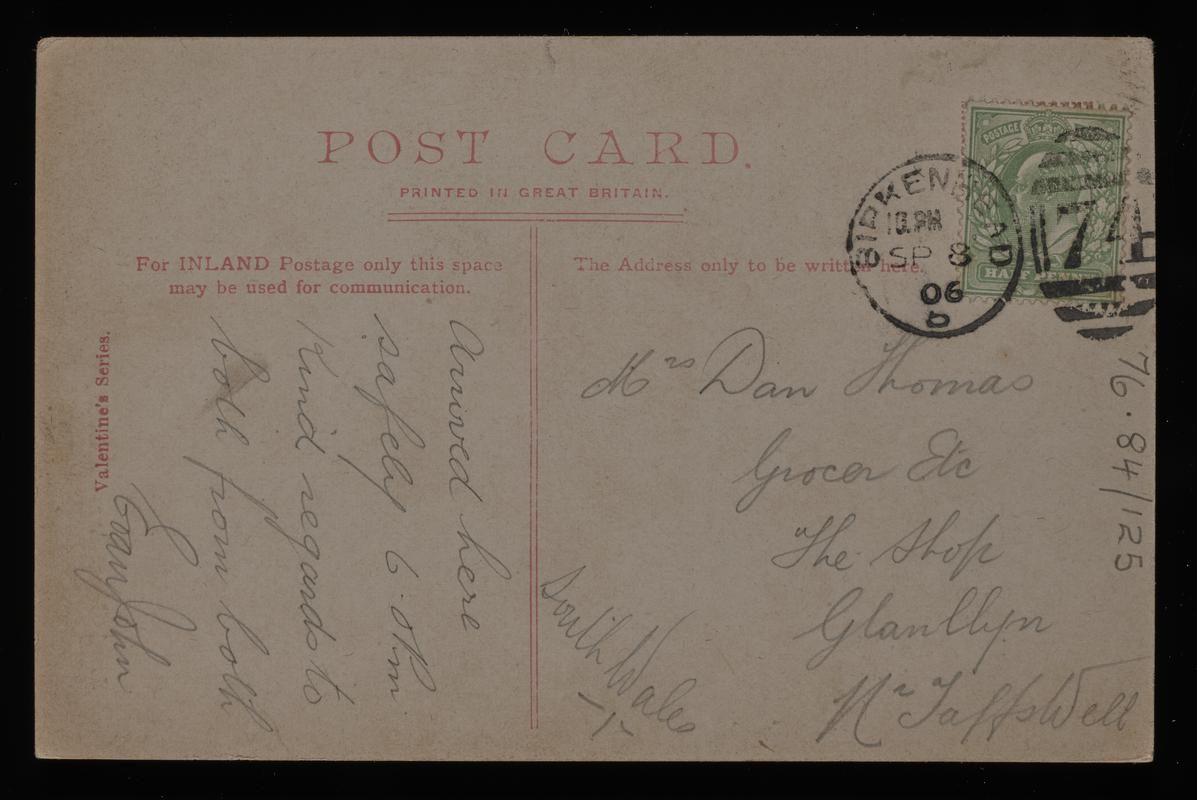 POST CARD.
PRINTED IN GREAT BRITAIN.
For INLAND Postage only this space
may be used for communication.
The Address only to be written here.
POSTAGE
HALF PENNY
BIRKENHEAD
10.PM
SP 8
06
b
74
Valentine's Series.
Arrived here
safely 6.0 Pm
Kind regards to
both from both
Evan John
Mrs Dan Thomas
Grocer Etc
The Shop
Glanllyn
Nr TaffsWell
South Wales
76.84/125